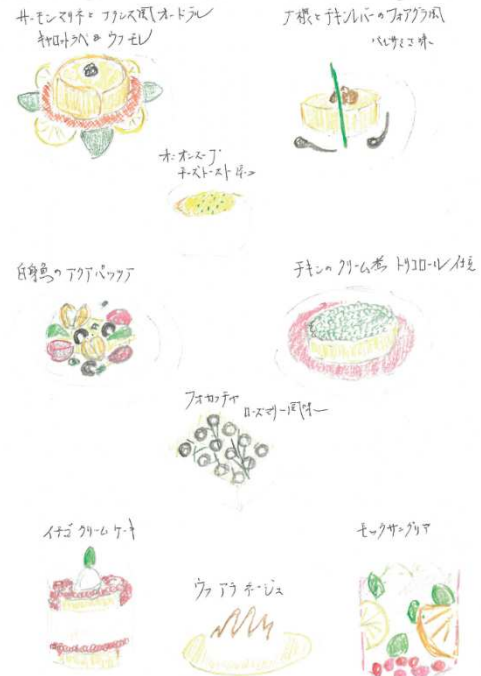 サーモンマリネと フランス風オードブル
キャロットラペ & ウフ モレ
大根とチキンレバーのフォアグラ風
バルサミコ味
オニオンスープ
チーズトースト
白身魚の アクアパッツァ
チキンの クリーム煮 トリコロール仕立
フォカッチャ
ローズマリー風味
イチゴ クリーム ケーキ
モックサングリア
ウフ ア ラ ネージュ